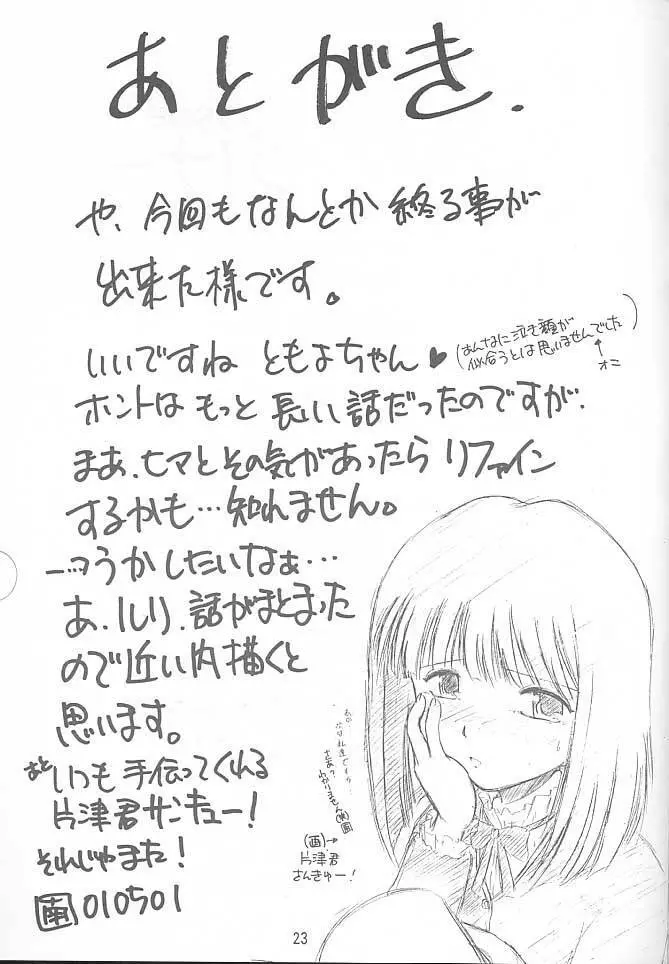 あとがき.
や、今回もなんとか 終る事が
出来た様です。
いいですね ともよちゃん♥
(あんなに泣き顔が
似合うとは思いませんでした)
↑
オニ
ホントは もっと 長い話だったのですが、
まあ、ヒマとその気があったら リファイン
するかも…知れません。
うかしたいなぁ…
あ、しり、話がまとまった
ので近い内描くと
思います。
あと いつも 手伝ってくれる
片津君サンキュー!
それじゃまた!
010501
(画)→
片津君
さんきゅー!
23